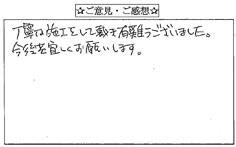 ☆ご意見・ご感想☆
丁寧な施工をして戴き有難うございました。
今後共宜しくお願いします。